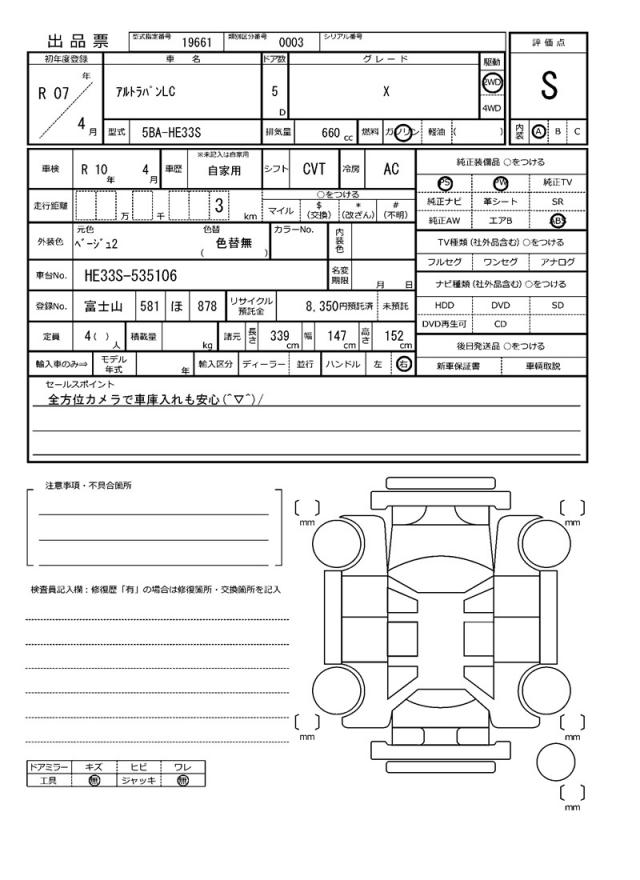 出品票 型式指定番号 19661 類別区分番号 0003 シリアル番号
初年度登録 車名 ドア数 グレード 駆動 評価点
R 07 年 4 月 アルトラパンLC 5 D X 2WD 4WD S
型式 5BA-HE33S 排気量 660 cc 燃料 ガソリン 軽油 ( ) 内装 A B C
車検 R 10 年 4 月 車歴 ※未記入は自家用 自家用 シフト CVT 冷房 AC 純正装備品 ○をつける
PS PW 純正TV
走行距離 万 千 3 km ○をつける
マイル $ (交換) * (改ざん) # (不明) 純正ナビ 革シート SR
純正AW エアB ABS
外装色 元色 ベージュ2 色替 色替無 ( ) カラーNo. 内装色 TV種類 (社外品含む) ○をつける
フルセグ ワンセグ アナログ
車台No. HE33S-535106 名変期限 月 日 ナビ種類 (社外品含む) ○をつける
登録No. 富士山 581 ほ 878 リサイクル預託金 8,350円預託済 未預託 HDD DVD SD
DVD再生可 CD
定員 4( ) 人 積載量 kg 諸元 長さ 339 cm 幅 147 cm 高さ 152 cm 後日発送品 ○をつける
輸入車のみ⇒ モデル年式 年 輸入区分 ディーラー 並行 ハンドル 左 右 新車保証書 車輌取説
セールスポイント
全方位カメラで車庫入れも安心(^▽^)/
注意事項・不具合箇所
mm mm
検査員記入欄:修復歴「有」の場合は修復箇所・交換箇所を記入
mm mm
ドアミラー キズ ヒビ ワレ
工具 無 ジャッキ 無
mm